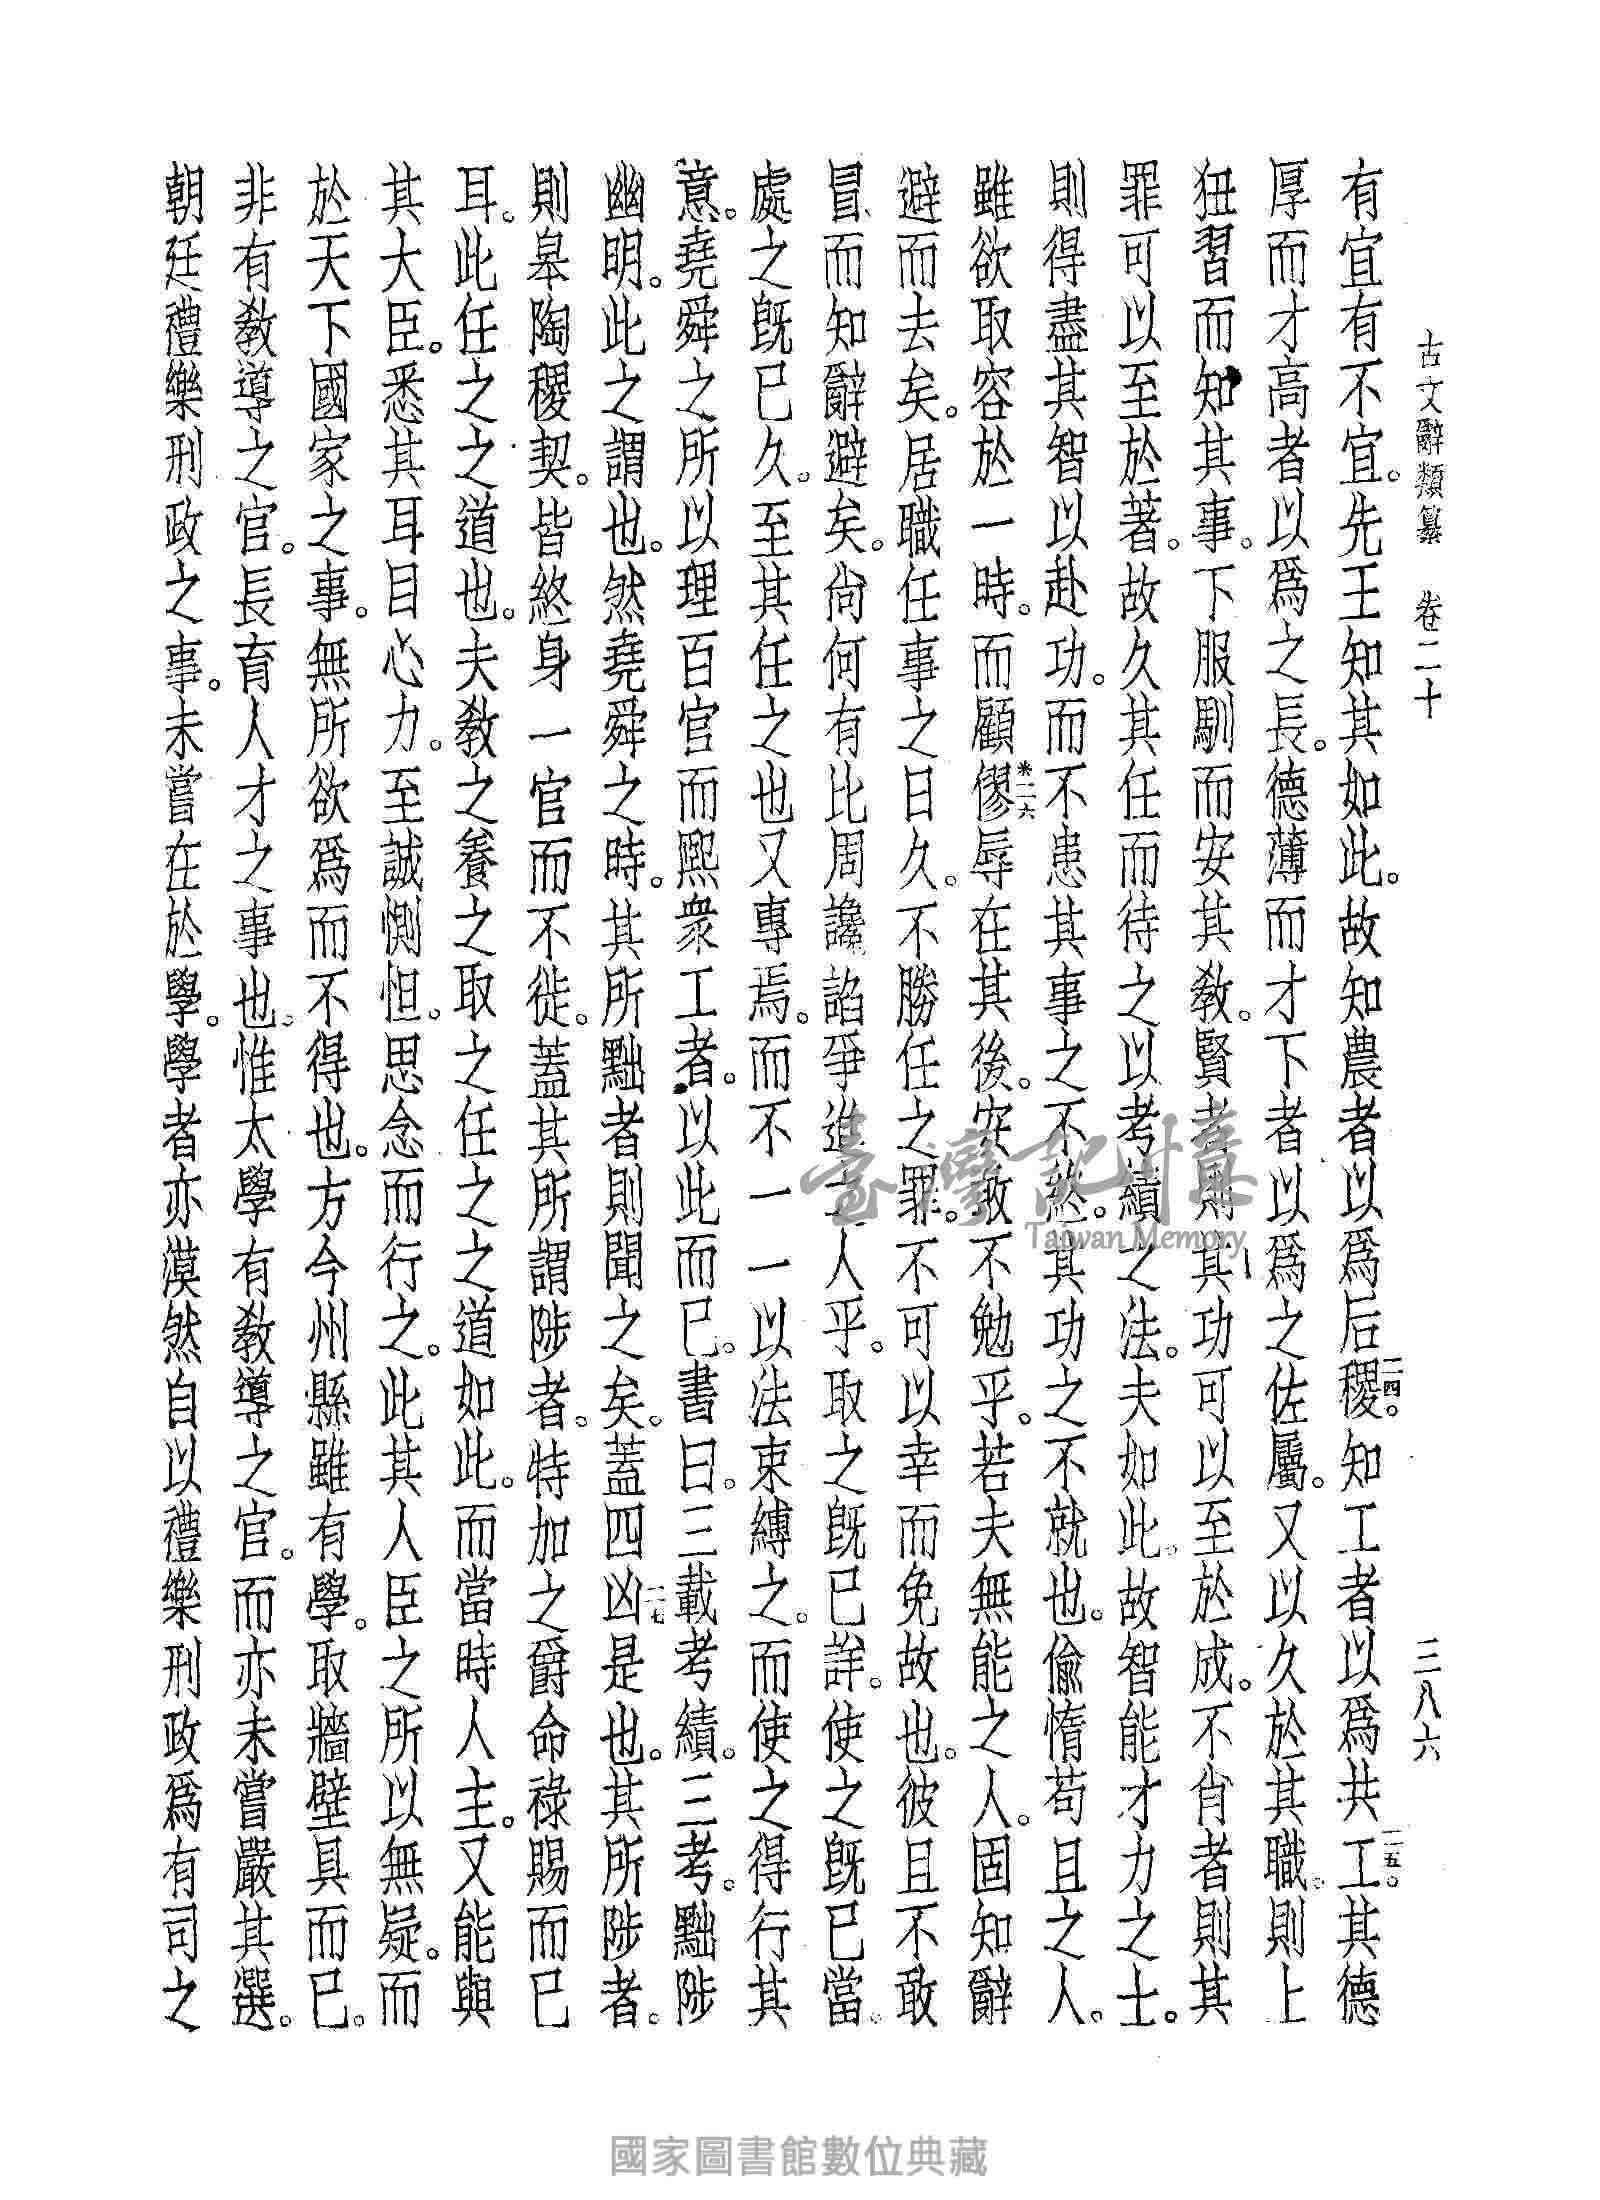 古文辭類纂　卷二十　三八六
有宜有不宜。先王知其如此。故知農者以爲后稷二四。知工者以爲共工二五。其德
厚而才高者以爲之長。德薄而才下者以爲之佐屬。又以久於其職。則上
狃習而知其事。下服馴而安其敎。賢者則其功可以至於成。不肖者則其
罪可以至於著。故久其任而待之以考績之法。夫如此。故智能才力之士。
則得盡其智以赴功。而不患其事之不終。其功之不就也。偷惰苟且之人。
雖欲取容於一時。而顧僇※二六辱在其後。安敢不勉乎。若夫無能之人。固知辭
避而去矣。居職任事之日久。不勝任之罪。不可以幸而免故也。彼且不敢
冒而知辭避矣。尙何有比周讒諂爭進之人乎。取之旣已詳。使之旣已當。
處之旣已久。至其任之也又專焉。而不一一以法束縛之。而使之得行其
意。堯舜之所以理百官而熙衆工者。以此而已。書曰。三載考績。三考。黜陟
幽明。此之謂也。然堯舜之時。其所黜者則聞之矣。蓋四凶二七是也。其所陟者。
則皋陶稷契。皆終身一官而不徙。蓋其所謂陟者。特加之爵命祿賜而已
耳。此任之之道也。夫敎之養之取之任之之道如此。而當時人主。又能與
其大臣。悉其耳目心力。至誠惻怛。思念而行之。此其人臣之所以無疑。而
於天下國家之事。無所欲爲而不得也。方今州縣雖有學。取牆壁具而已。
非有敎導之官。長育人才之事也。惟太學有敎導之官。而亦未嘗嚴其選。
朝廷禮樂刑政之事。未嘗在於學。學者亦漠然自以禮樂刑政爲有司之
臺灣記憶
Taiwan Memory
國家圖書館數位典藏